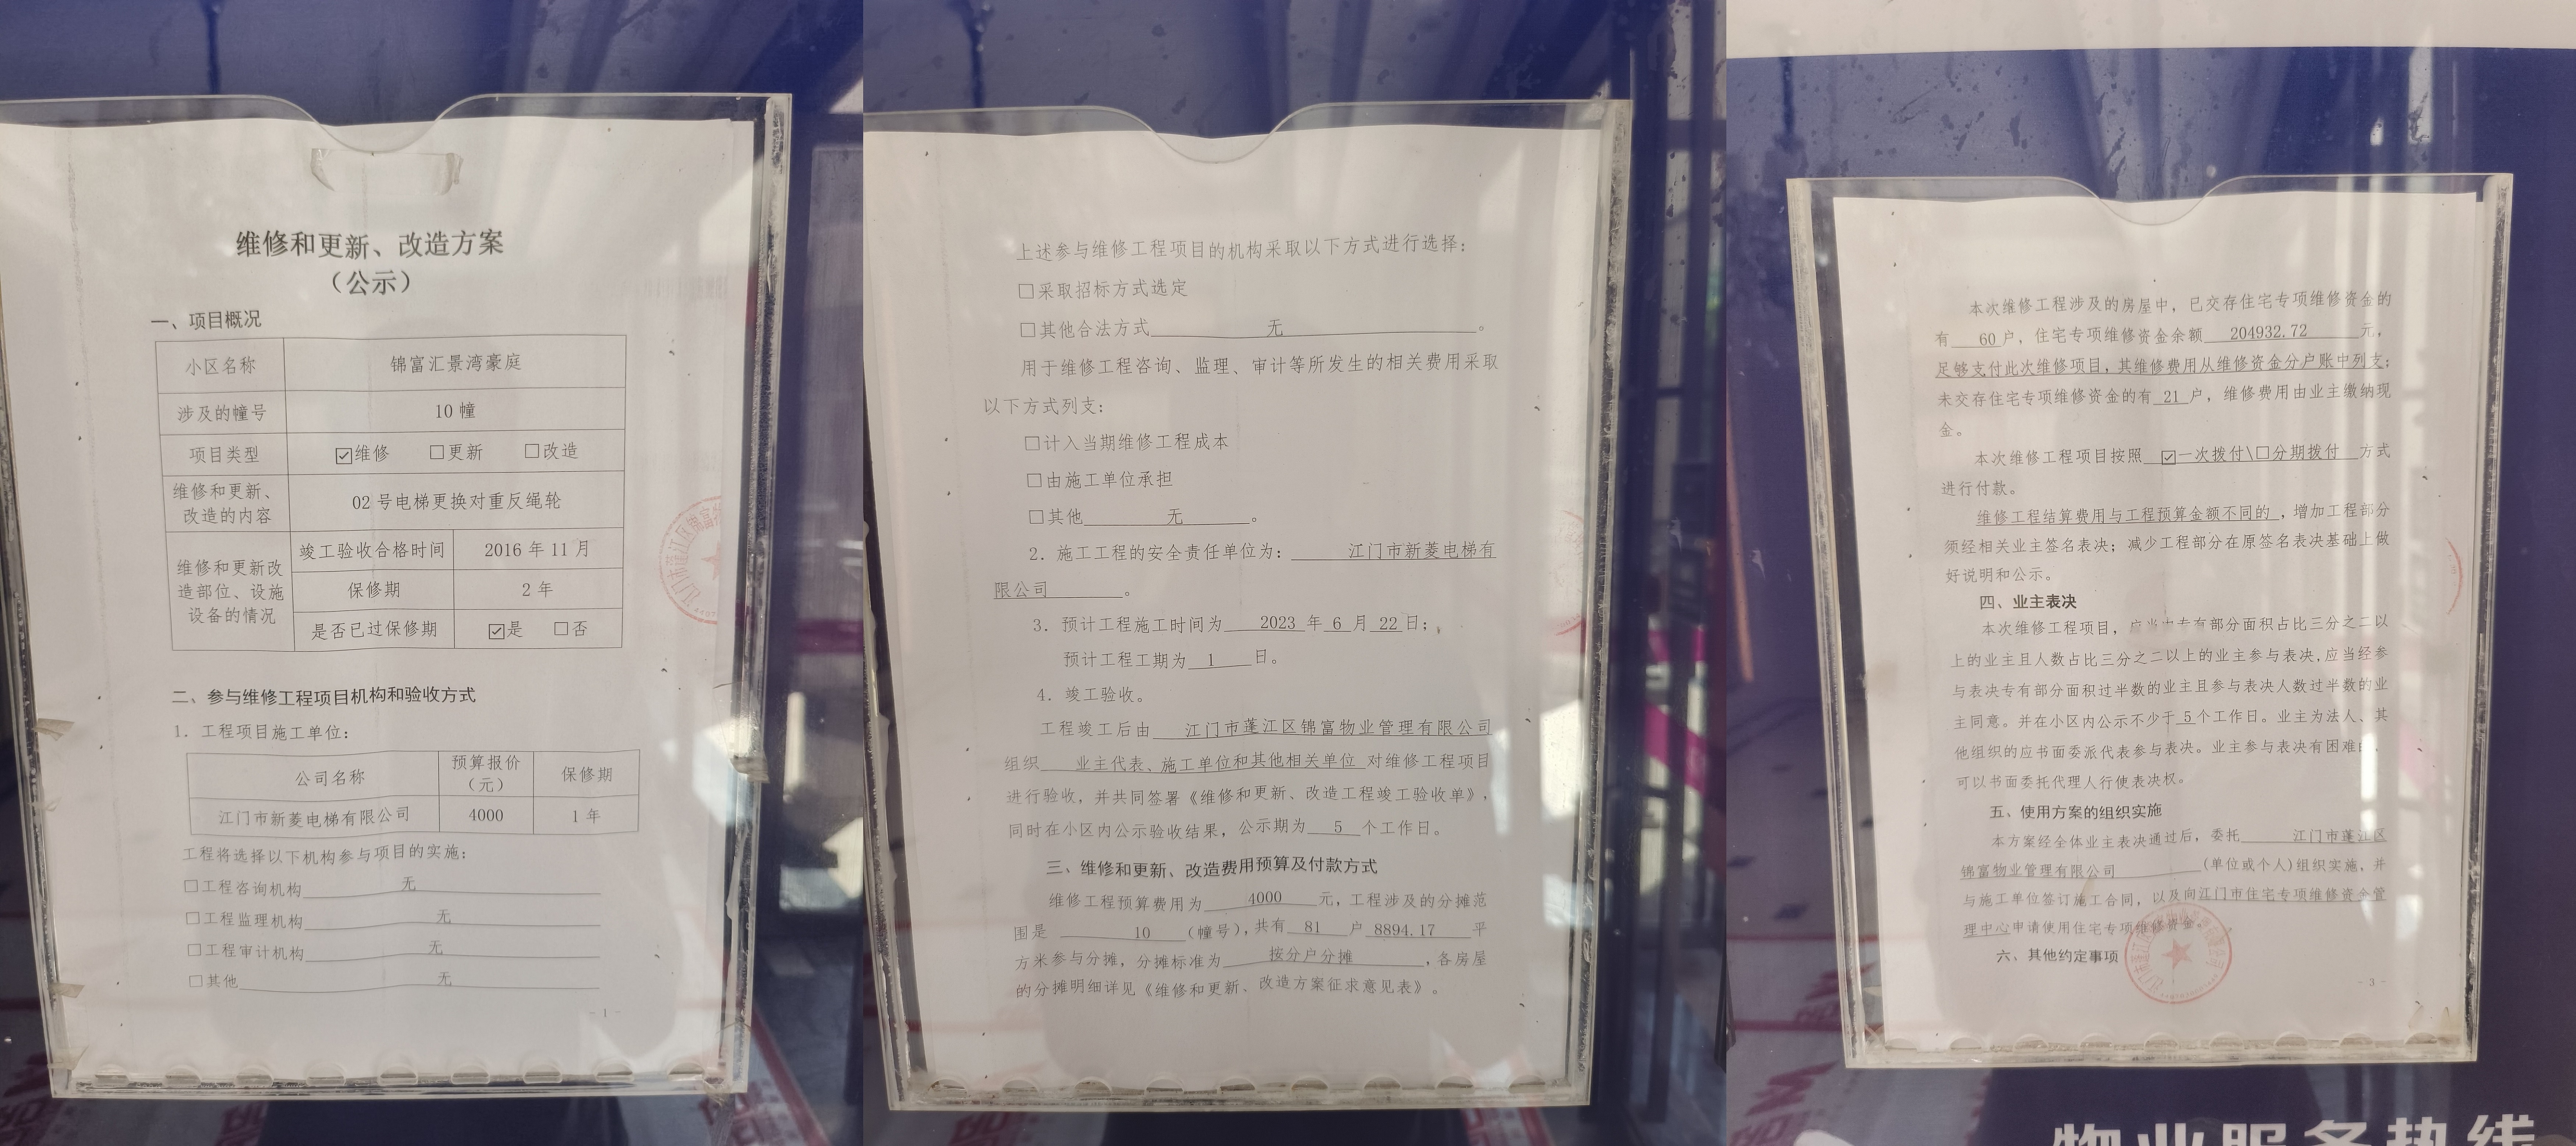 维修和更新、改造方案
（公示）
一、项目概况
小区名称 锦富汇景湾豪庭
涉及的幢号 10 幢
项目类型 ☑维修 □更新 □改造
维修和更新、改造的内容 02 号电梯更换对重反绳轮
维修和更新改造部位、设施设备的情况
竣工验收合格时间 2016 年 11 月
保修期 2 年
是否已过保修期 ☑是 □否
二、参与维修工程项目机构和验收方式
1. 工程项目施工单位：
公司名称 预算报价（元） 保修期
江门市新菱电梯有限公司 4000 1 年
工程将选择以下机构参与项目的实施：
□工程咨询机构 无
□工程监理机构 无
□工程审计机构 无
□其他 无
- 1 -
上述参与维修工程项目的机构采取以下方式进行选择：
□采取招标方式选定
□其他合法方式 无 。
用于维修工程咨询、监理、审计等所发生的相关费用采取
以下方式列支：
□计入当期维修工程成本
□由施工单位承担
□其他 无 。
2. 施工工程的安全责任单位为： 江门市新菱电梯有
限公司 。
3. 预计工程施工时间为 2023 年 6 月 22 日；
预计工程工期为 1 日。
4. 竣工验收。
工程竣工后由 江门市蓬江区锦富物业管理有限公司
组织 业主代表、施工单位和其他相关单位 对维修工程项目
进行验收，并共同签署《维修和更新、改造工程竣工验收单》，
同时在小区内公示验收结果，公示期为 5 个工作日。
三、维修和更新、改造费用预算及付款方式
维修工程预算费用为 4000 元，工程涉及的分摊范
围是 10 （幢号），共有 81 户 8894.17 平
方米参与分摊，分摊标准为 按分户分摊 ，各房屋
的分摊明细详见《维修和更新、改造方案征求意见表》。
本次维修工程涉及的房屋中，已交存住宅专项维修资金的
有 60 户，住宅专项维修资金余额 204932.72 元，
足够支付此次维修项目，其维修费用从维修资金分户账中列支；
未交存住宅专项维修资金的有 21 户，维修费用由业主缴纳现
金。
本次维修工程项目按照 ☑一次拨付\□分期拨付 方式
进行付款。
维修工程结算费用与工程预算金额不同的 ，增加工程部分
须经相关业主签名表决；减少工程部分在原签名表决基础上做
好说明和公示。
四、业主表决
本次维修工程项目，应当由专有部分面积占比三分之二以
上的业主且人数占比三分之二以上的业主参与表决，应当经参
与表决专有部分面积过半数的业主且参与表决人数过半数的业
主同意。并在小区内公示不少于 5 个工作日。业主为法人、其
他组织的应书面委派代表参与表决。业主参与表决有困难的，
可以书面委托代理人行使表决权。
五、使用方案的组织实施
本方案经全体业主表决通过后，委托 江门市蓬江区
锦富物业管理有限公司 (单位或个人)组织实施，并
与施工单位签订施工合同，以及向江门市住宅专项维修资金管
理中心申请使用住宅专项维修资金。
六、其他约定事项
- 3 -
物业服务热线